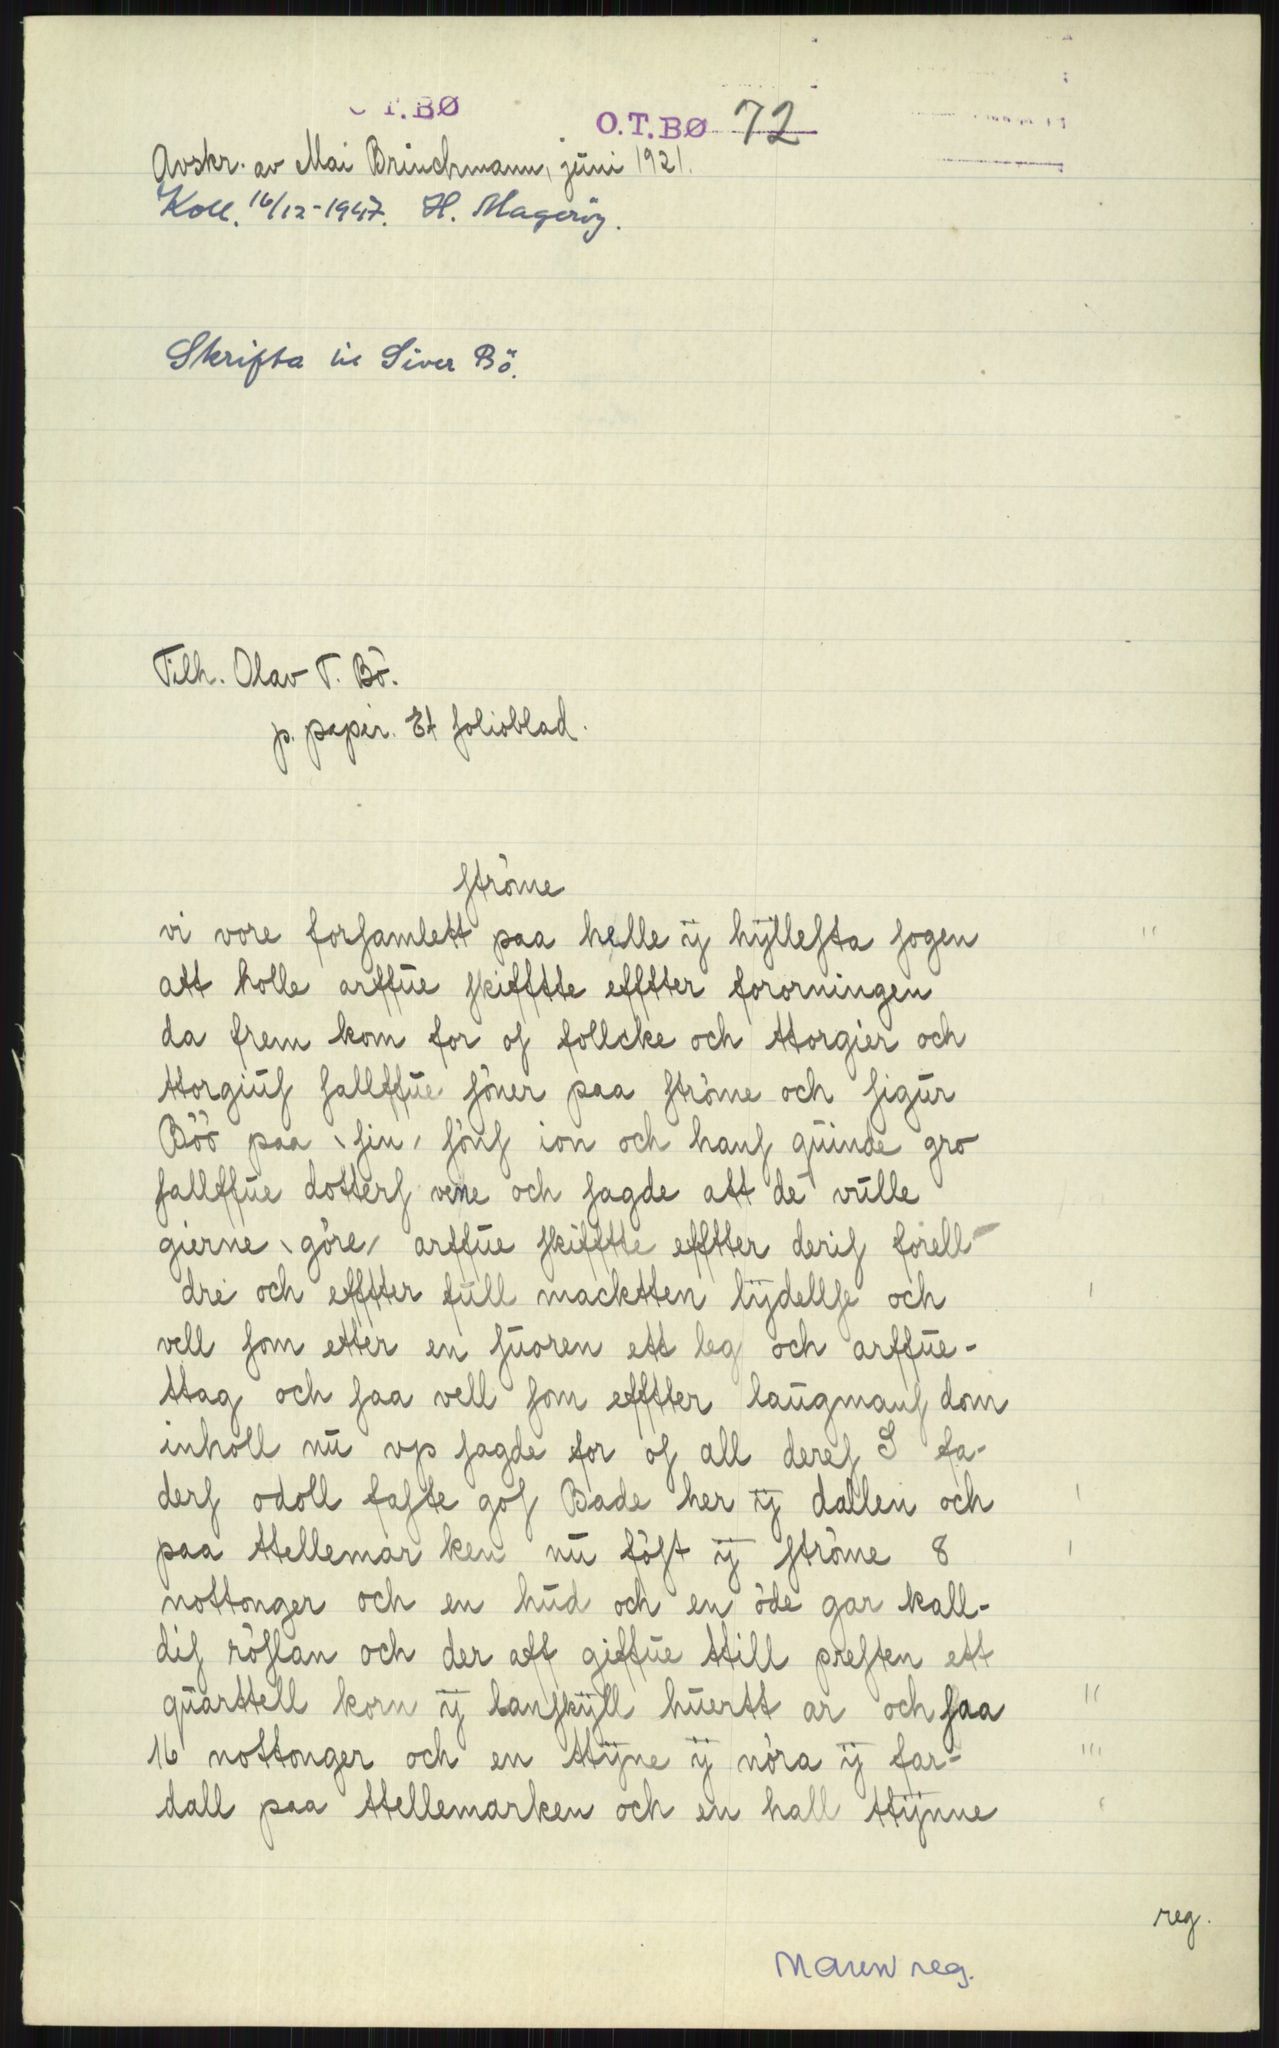 T.BØ
O.T.BØ 72
Avskr. av Mai Brinchmann, juni 1921.
Koll. 16/12-1947. H. Magerøy.
Skrifta til Siver Bö.
Tilh. Olav T. Bö.
p. papir. Et folioblad.
ströme
vi vore forsamlett paa helle ÿ hÿllesta sogen
att holle arffue skifftte efftter forormingen
da frem kom for os follcke och ttorgier och
ttorgius sallffue söner paa ströme och sigur
Böö paa \sin/ söns ion och hans quinde gro
sallffue dotters vene och sagde att de vulle
gierne \göre/ arffue skifftte efftter deris forell-
dre och efftter full macktten lÿdellse och
vell som etter en suoren ett leg och arffue-
ttag och saa vell som efftter laugmans dom
inholl nu vp sagde for os all deres S fa-
ders odoll faste gos Bade her ÿ dallen och
paa ttellemar ken nu föst ÿ ströme 8
nottonger och en hud och en öde gar kall-
dis röslan och der aff giffue ttill presten ett
quarttell korn ÿ lanskÿll huertt ar och saa
16 nottonger och en ttÿne ÿ nöra ÿ far-
dall paa ttellemarken och en hall ttÿnne
reg.
Navn reg.